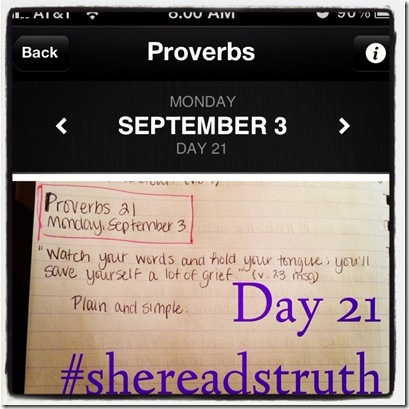 AT&T 8:00 AM 90%
Back Proverbs i
MONDAY
SEPTEMBER 3
DAY 21
Proverbs 21
Monday, September 3
"Watch your words and hold your tongue; you'll
save yourself a lot of grief." (v. 23 msg)
Plain and simple.
Day 21
#shereadstruth